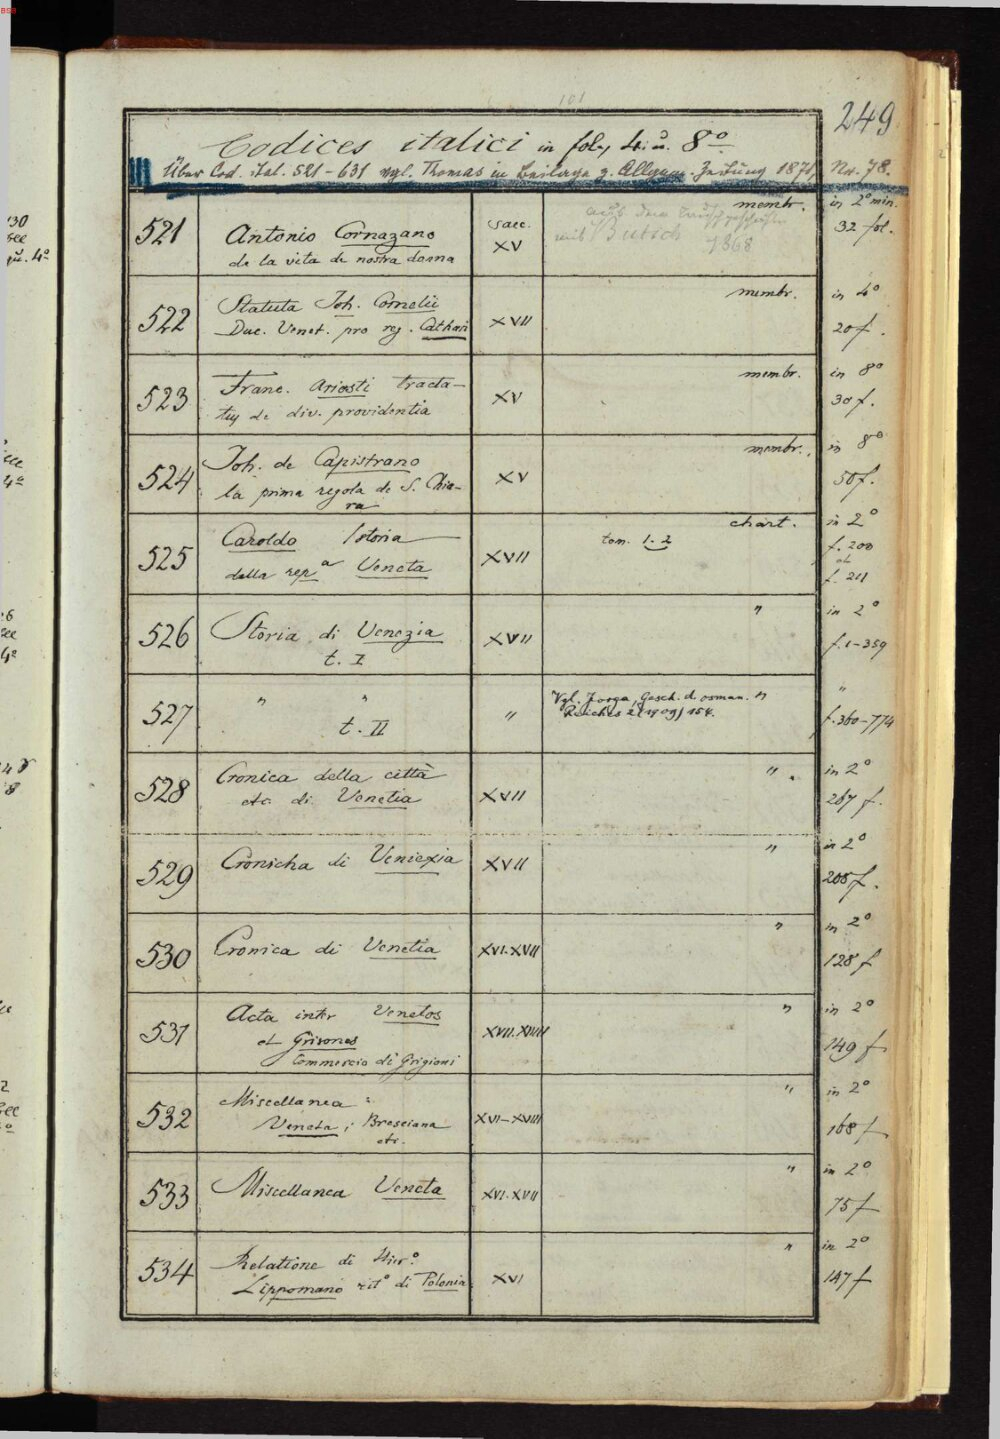 BSB
101
249
Codices italici in fol., 4. u. 8°.
Über Cod. ital. 521-631 vgl. Thomas in Beilage z. Allgem. Zeitung 1871, Nr. 78.
521
Antonio Cornazano
de la vita de nostra donna
saec.
XV
aus dem Tauschgeschäfte
mit Butsch 1868
membr.
in 2° min.
32 fol.
522
Statuta Joh. Cornelii
Duc. Venet. pro reg. Cathari
XVII
membr.
in 4°
20 f.
523
Franc. Ariosti tracta-
tus de div. providentia
XV
membr.
in 8°
30 f.
524
Joh. de Capistrano
la prima regola de S. Chia-
ra
XV
membr.
in 8°
50 f.
525
Caroldo Istoria
della rep.a Veneta
XVII
tom. 1. 2
chart.
in 2°
f. 200
et
f. 211
526
Storia di Venezia
t. I
XVII
"
in 2°
f. 1-359
527
" "
t. II
"
Vgl. Jorga, Gesch. d. osman.
Reiches 2 (1909) 154.
"
"
f. 360-774
528
Cronica della città
etc. di Venetia
XVII
"
in 2°
267 f.
529
Cronicha di Veniexia
XVII
"
in 2°
208 f.
530
Cronica di Venetia
XVI. XVII
"
in 2°
128 f
531
Acta inter Venetos
et Grisones
Commercio di Grigioni
XVII. XVIII
"
in 2°
149 f
532
Miscellanea
Veneta; Bresciana
etc.
XVI-XVIII
"
in 2°
168 f
533
Miscellanea Veneta
XVI. XVII
"
in 2°
75 f
534
Relatione di Hier.°
Lippomano rit° di Polonia
XVI
"
in 2°
147 f